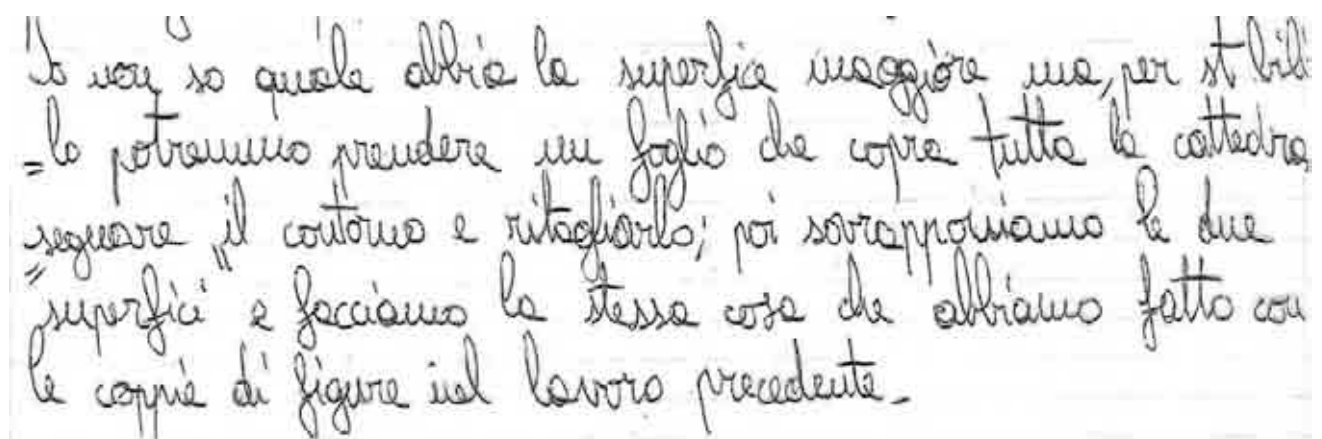 Io non so quale abbia la superfice maggiore ma, per st bili
=lo potremmo prendere un foglio che copra tutta la cattedra
segnare "il contorno e ritagliarlo; poi sovrapponiamo le due
"superfici e facciamo la stessa cosa che abbiamo fatto con
le coppie di figure nel lavoro precedente.